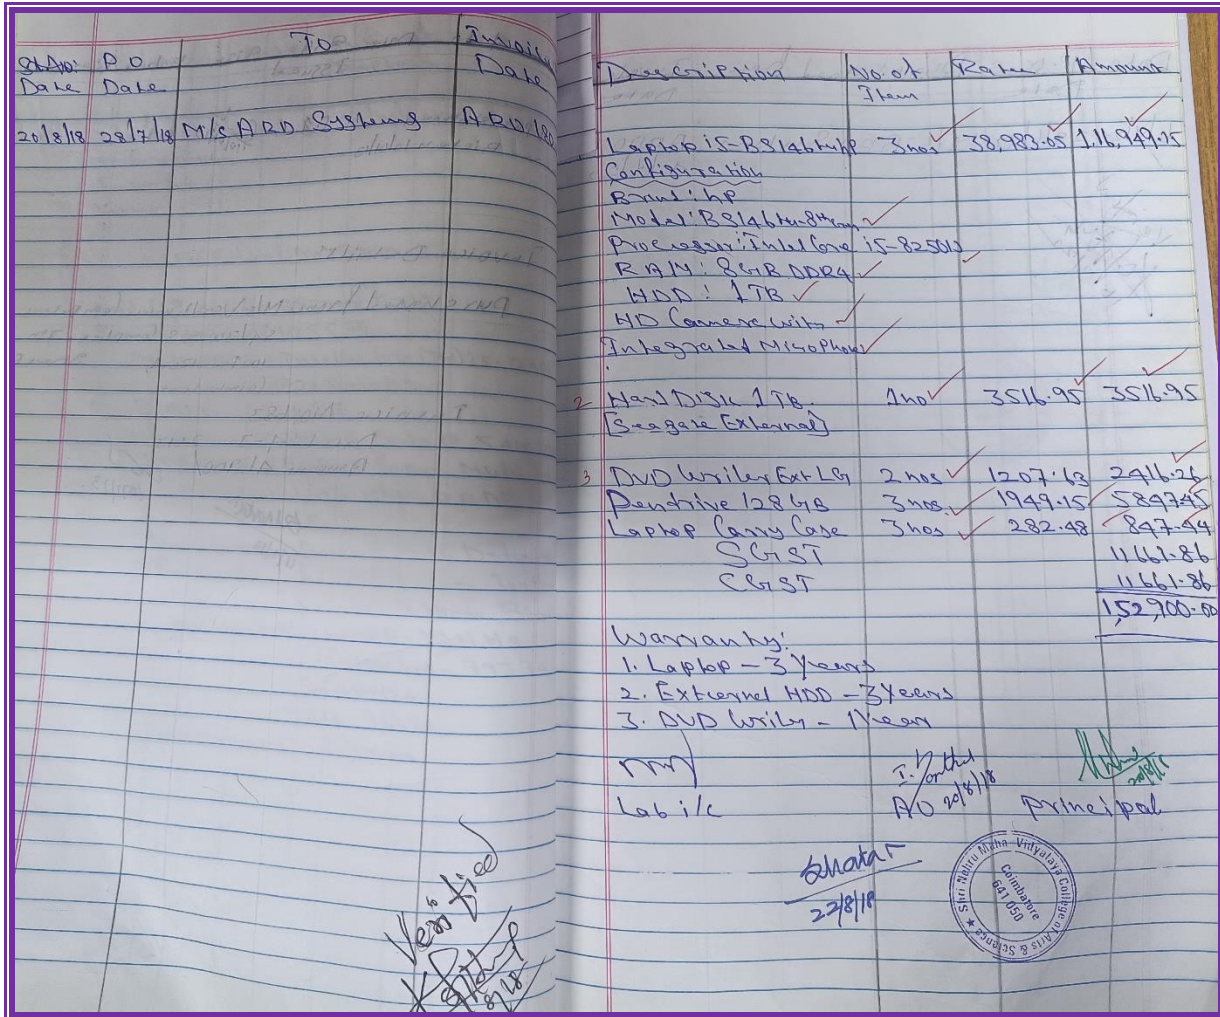 St.No: P O To Invoice
Date Date Date
20/8/18 28/7/18 M/s ARD Systems ARD/180
Description No. of Rate Amount
Item
Laptop i5-BS146tu hp 3nos 38,983.05 1,16,949.15
Configuration
Brand: hp
Model: BS146tu-8th Gen
Processer: Intel Core i5-8250U
RAM: 8GB DDR4
HDD: 1TB
HD Camera with
Integrated Microphone
2 Hard Disk 1TB. 1no 3516.95 3516.95
[Seagate External]
3 DVD Writer Ext LG 2 nos 1207.63 2416.26
Pendrive 128 GB 3nos. 1949.15 5847.45
Laptop Carry Case 3nos 282.48 847.44
SGST 11661.86
CGST 11661.86
1,52,900.00
Warranty:
1. Laptop - 3 Years
2. External HDD - 3 Years
3. DVD Writer - 1 Year
20/8/18
Lab i/c AO 20/8/18 Principal
22/8/18
Verified
Shri Nehru Maha Vidyalaya College of Arts & Science
Coimbatore
641 050